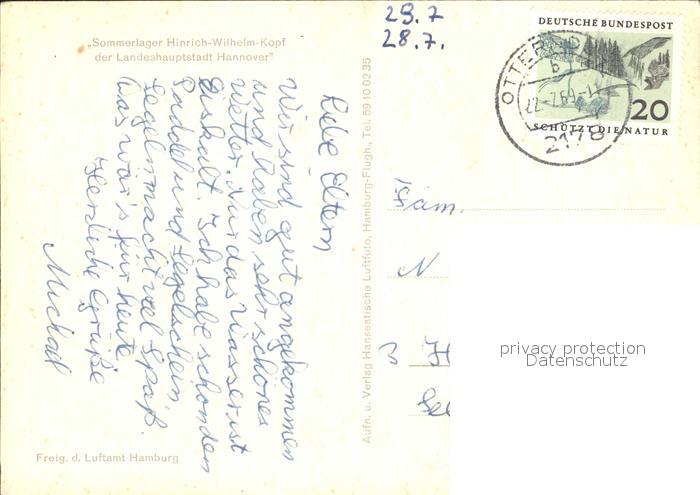 „Sommerlager Hinrich-Wilhelm-Kopf
der Landeshauptstadt Hannover"
Liebe Eltern
Wir sind gut angekommen
und haben sehr schönes
Wetter. Nur das Wasser ist
Eiskalt. Ich habe schon den
Paddel und Segelschein
Segeln macht viel Spaß.
Das wär's für heute
Herzliche Grüße
Michael
Freig. d. Luftamt Hamburg
Aufn. u. Verlag Hanseatische Luftfoto, Hamburg-Flugh., Tel. 59 10 02 35
29.7
28.7.
DEUTSCHE BUNDESPOST
20
SCHÜTZT DIE NATUR
OTTERNDORF
b
22.-7.69-1
2178
Fam.
N
3 H
privacy protection
Datenschutz